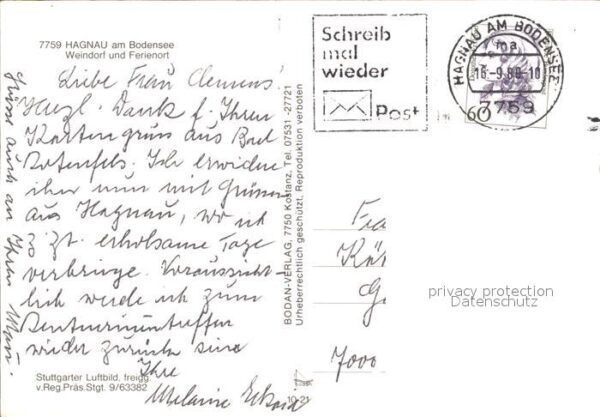 7759 HAGNAU am Bodensee
Weindorf und Ferienort
Liebe Frau Clemens!
Herzl. Dank f. Ihren
Kartengruss aus Bad
Rotenfels. Ich erwidere
ihn nun mit Grüssen
aus Hagnau, wo ich
z. Zt. erholsame Tage
verbringe. Voraussicht-
lich werde ich zum
Rentnerinnentreffen
wieder zurück sein
Ihre
Melanie
Grüsse auch an Ihren Mann.
Stuttgarter Luftbild, freigg.
v.Reg.Präs.Stgt. 9/63382
BODAN-VERLAG, 7750 Kostanz, Tel. 07531-27721
Urheberrechtlich geschützt. Reproduktion verboten
10-21
Schreib
mal
wieder
Post
HAGNAU AM BODENSEE
ma
7759
60
Fra
Kät
G
7000
privacy protection
Datenschutz